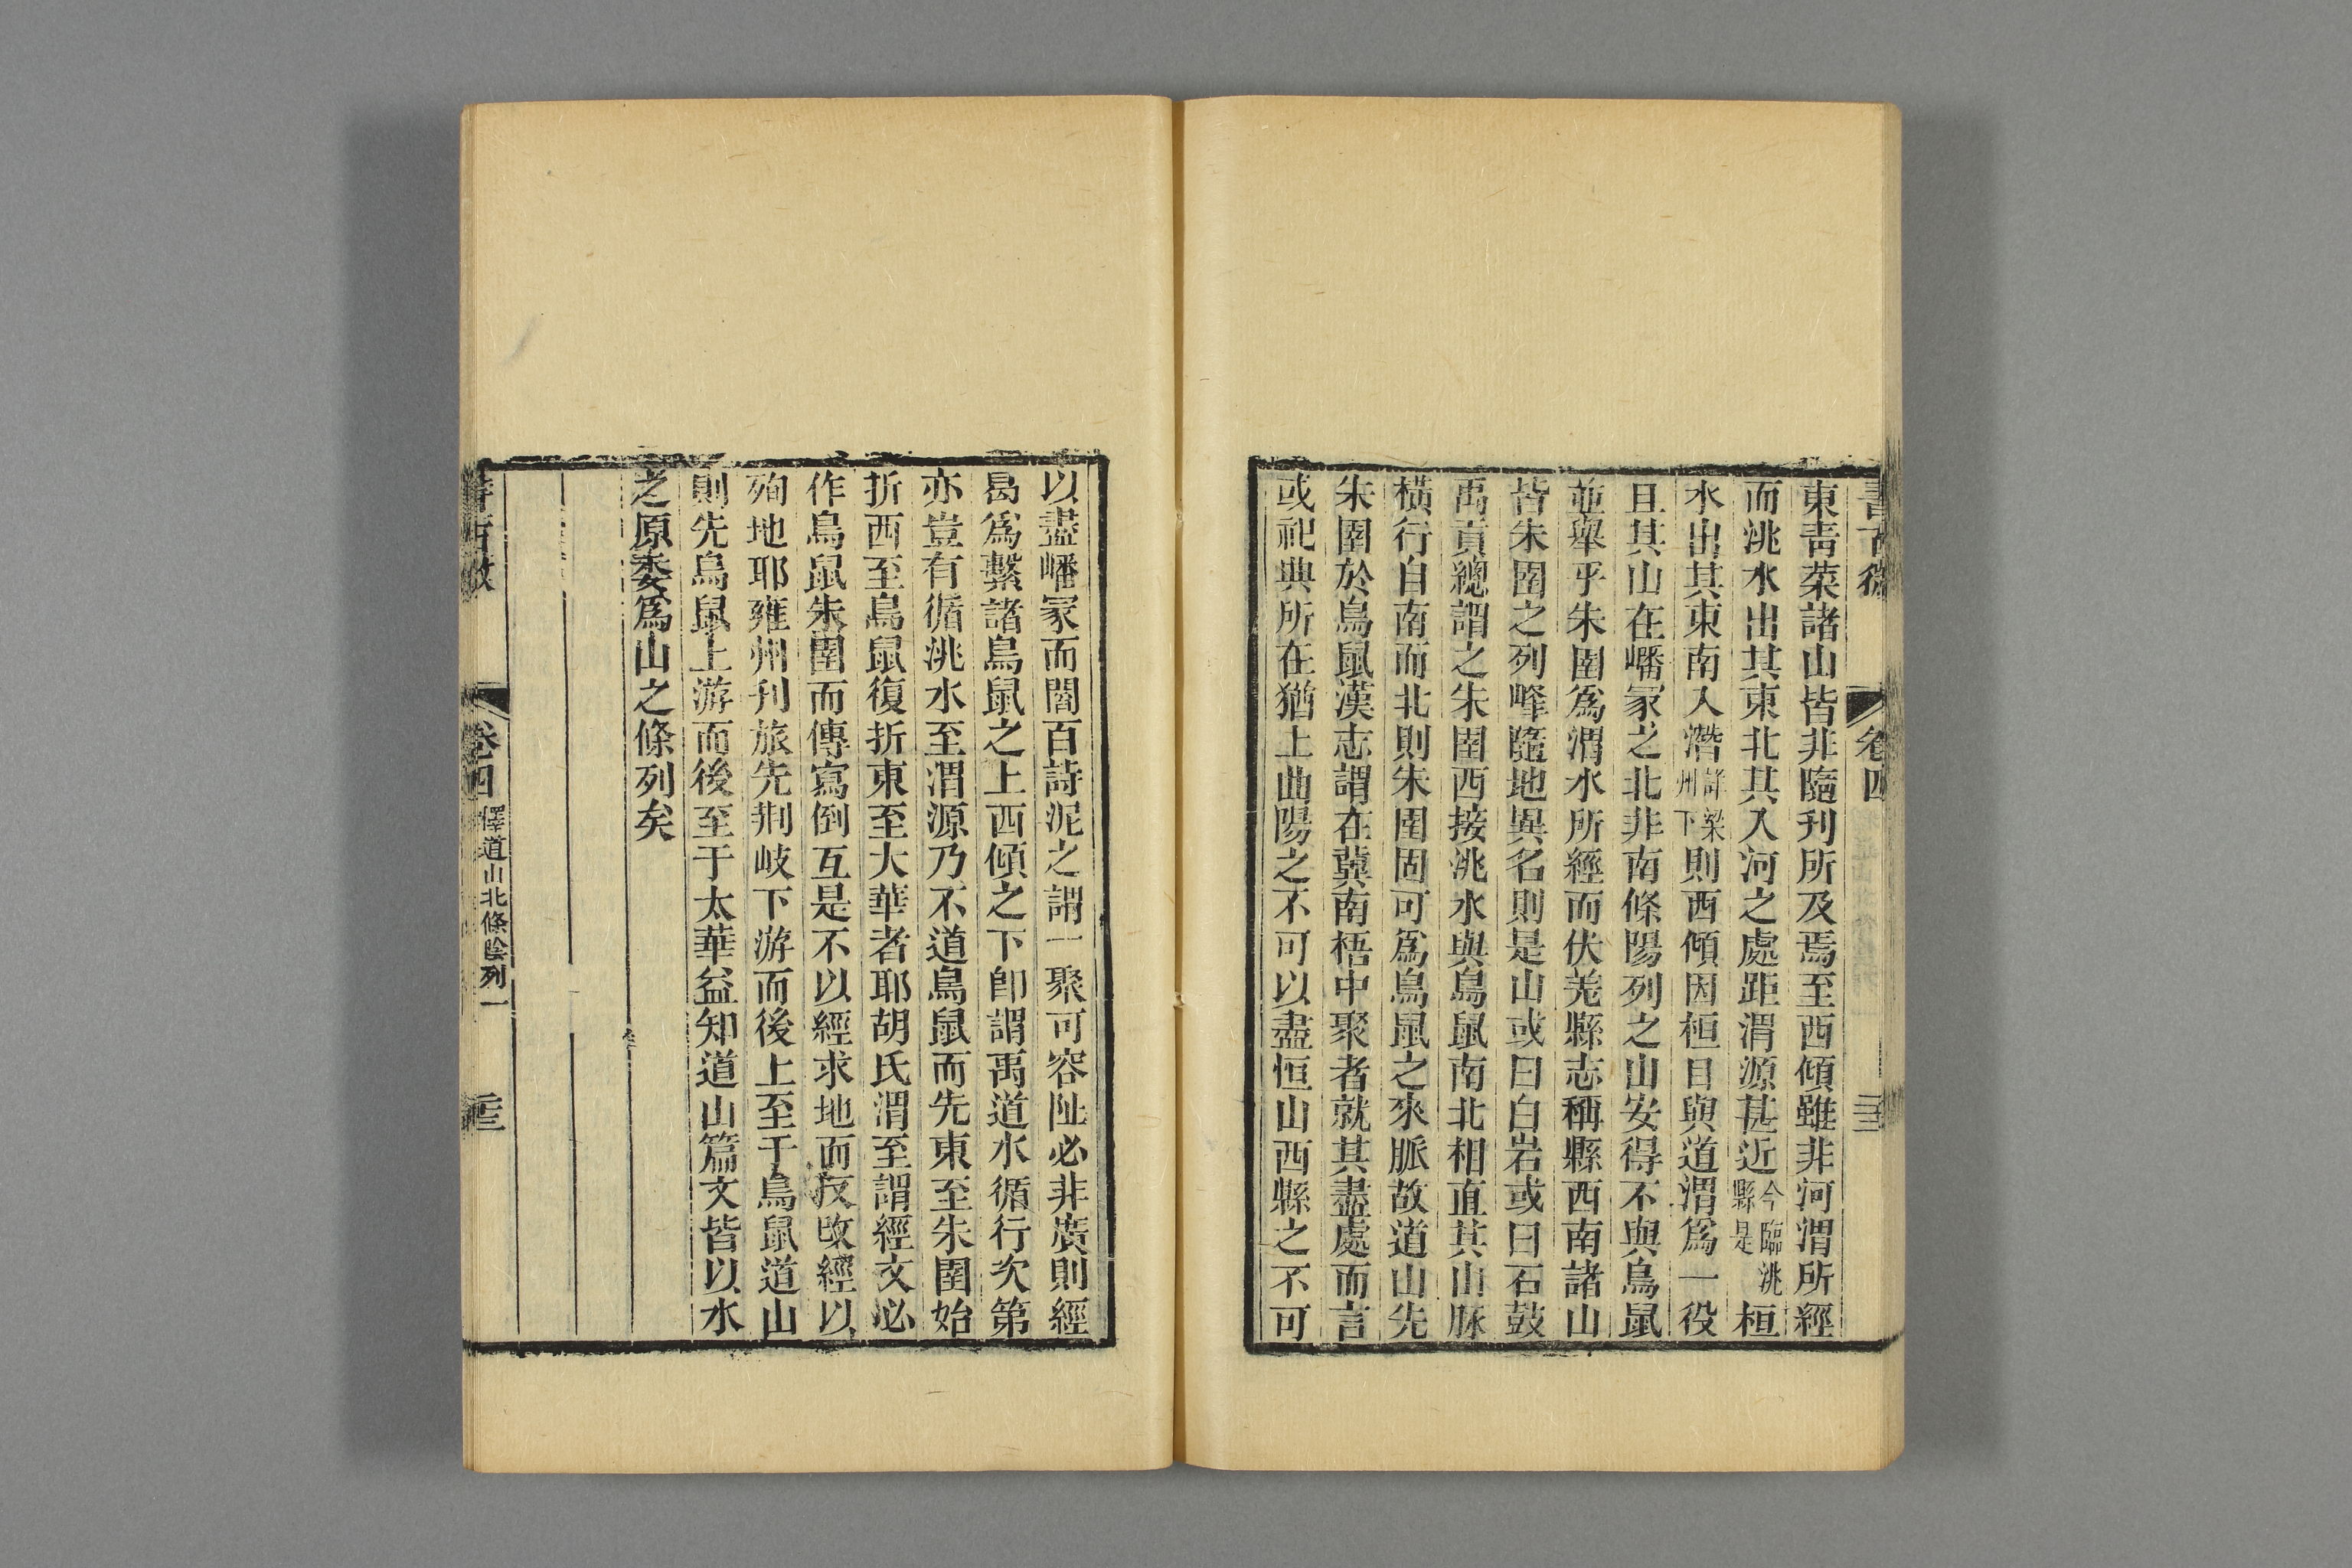 書古微
卷四
東青萊諸山皆非隨刊所及焉至西傾雖非河渭所經
而洮水出其東北其入河之處距渭源甚近今臨洮縣是桓
水出其東南入潛詳梁州下則西傾因桓目與道渭爲一役
且其山在嶓冢之北非南條陽列之山安得不與鳥鼠
並舉乎朱圉爲渭水所經而伏羌縣志稱縣西南諸山
皆朱圉之列峰隨地異名則是山或曰白岩或曰石鼓
禹貢總謂之朱圉西接洮水與鳥鼠南北相直其山脉
橫行自南而北則朱圉固可爲鳥鼠之來脈故道山先
朱圉於鳥鼠漢志謂在冀南梧中聚者就其盡處而言
或祀典所在猶上曲陽之不可以盡恒山西縣之不可
以盡嶓冢而閻百詩泥之謂一聚可容阯必非廣則經
曷爲繫諸鳥鼠之上西傾之下卽謂禹道水循行次第
亦豈有循洮水至渭源乃不道鳥鼠而先東至朱圉始
折西至鳥鼠復折東至大華者耶胡氏渭至謂經文必
作鳥鼠朱圉而傳寫倒互是不以經求地而反改經以
殉地耶雍州刊旅先荆岐下游而後上至于鳥鼠道山
則先鳥鼠上游而後至于太華益知道山篇文皆以水
之原委爲山之條列矣
卷四
釋道山北條陰列一